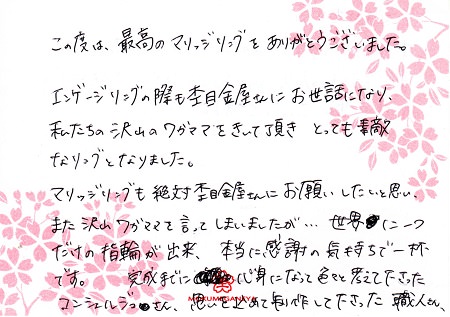 この度は、最高のマリッジリングをありがとうございました。
エンゲージリングの際も杢目金屋さんにお世話になり、
私たちの沢山のワガママをきいて頂き とっても素敵
なリングとなりました。
マリッジリングも絶対杢目金屋さんにお願いしたいと思い、
また沢山ワガママを言ってしまいましたが… 世界に一つ
だけの指輪が出来、本当に感謝の気持ちで一杯
です。 完成までに 心身になって色々と考えて下さった
コンシェルジュさん、思いを込めて制作して下さった 職人さん、
MOKUMEGANEYA